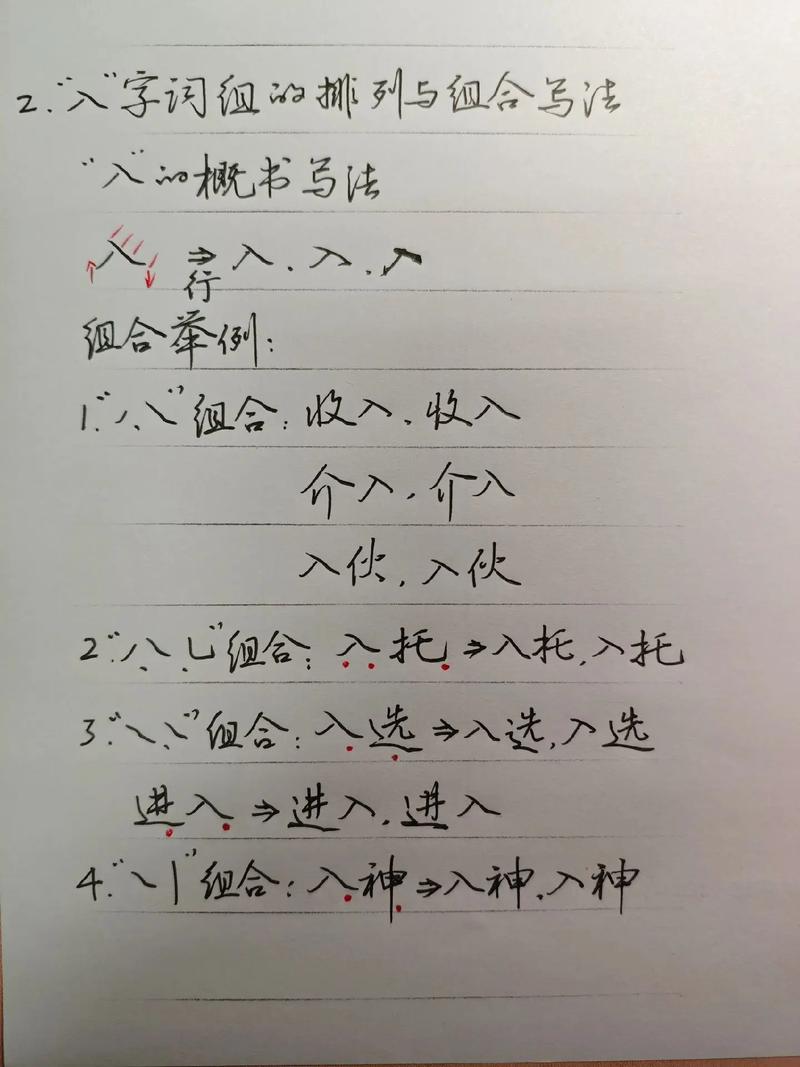 2.“入”字词组的排列与组合写法
“入”的概书写法
入 ⇒行 入.入.入
组合举例：
1.“八、乀”组合：收入.收入
介入.介入
入伙,入伙
2.“八、乚”组合：入托⇒入托,入托
3.“乀、乀”组合：入选⇒入选,入选
进入⇒进入.进入
4.“乀丨”组合：入神⇒入神.入神